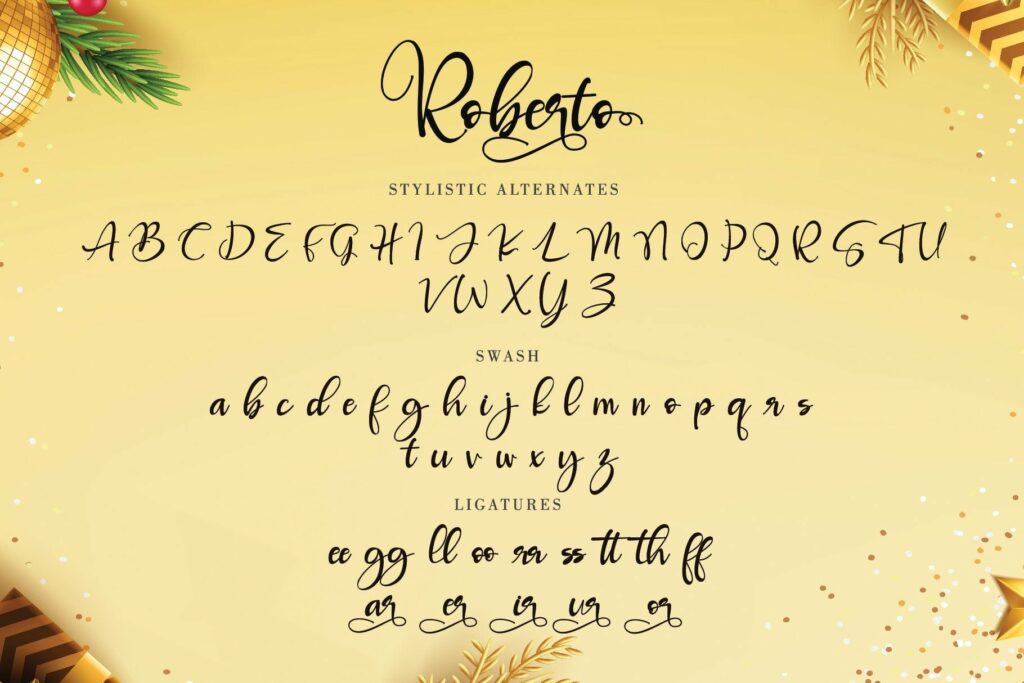 Roberto
STYLISTIC ALTERNATES
A B C D E F G H I J K L M N O P Q R S T U
V W X Y Z
SWASH
a b c d e f g h i j k l m n o p q r s
t u v w x y z
LIGATURES
ee gg ll oo rr ss tt th ff
ar er ir ur or